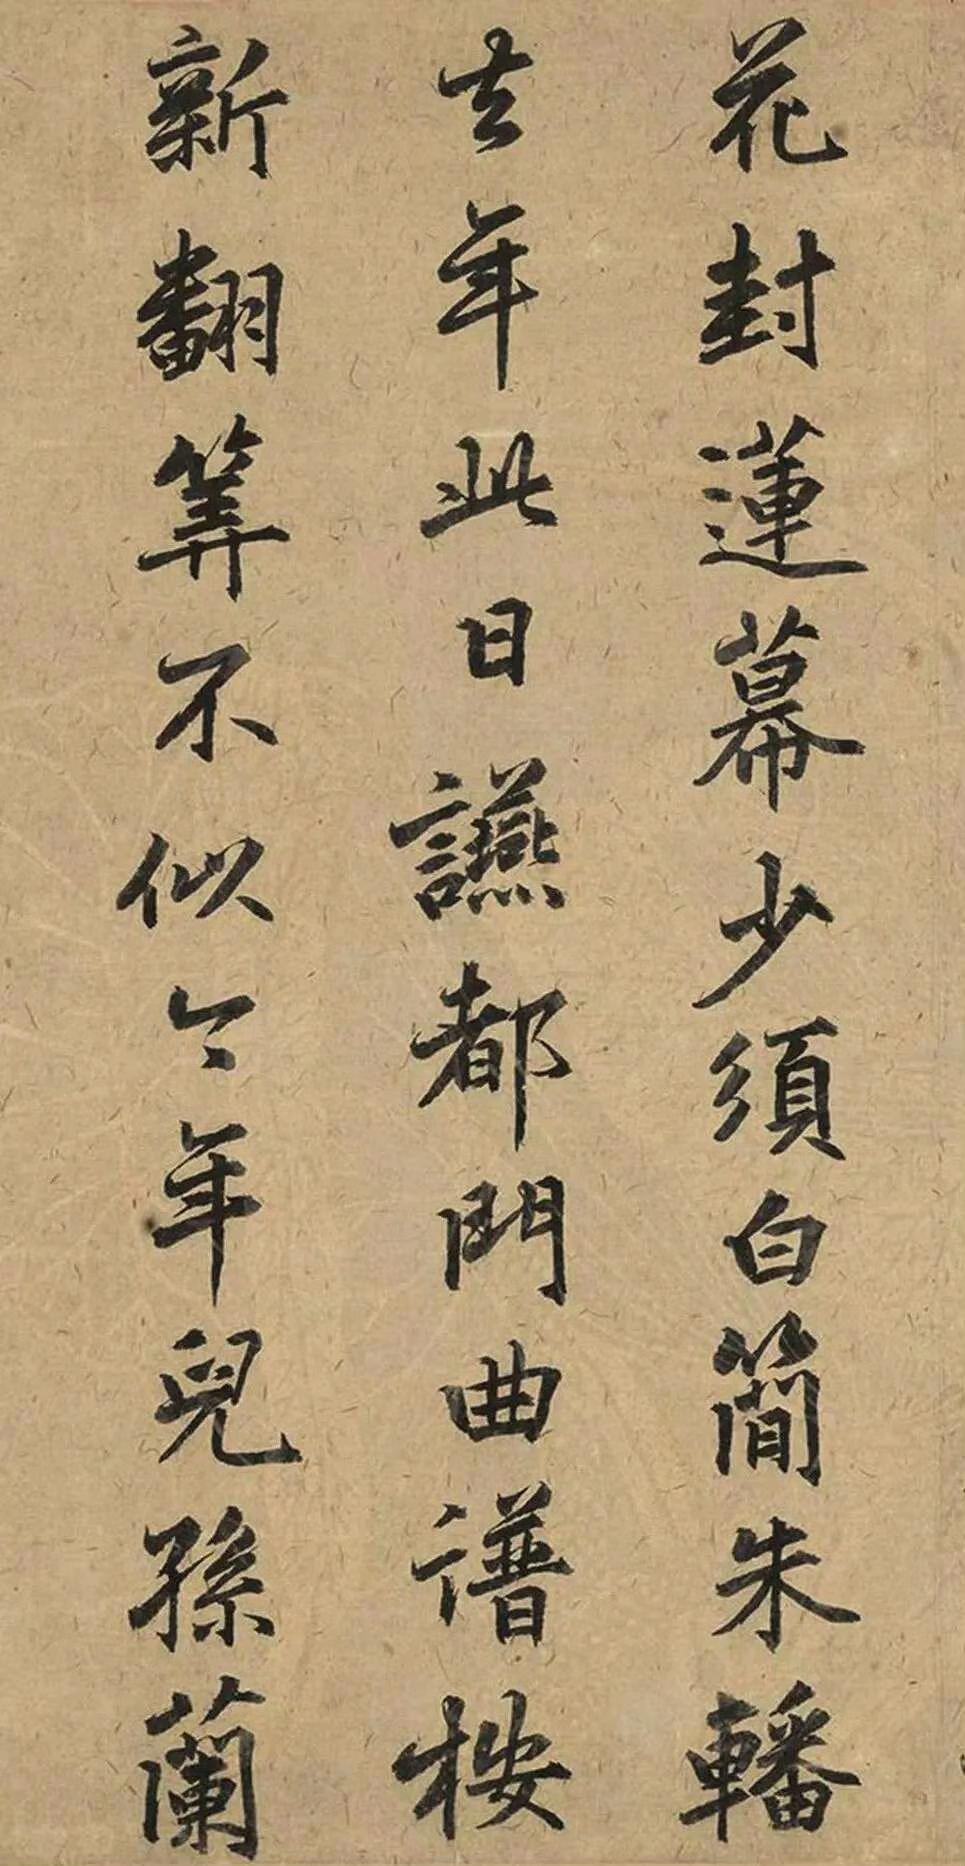 花封蓮幕少須白簡朱轓
去年此日讌都門曲譜桉
新翻筭不似今年兒孫蘭